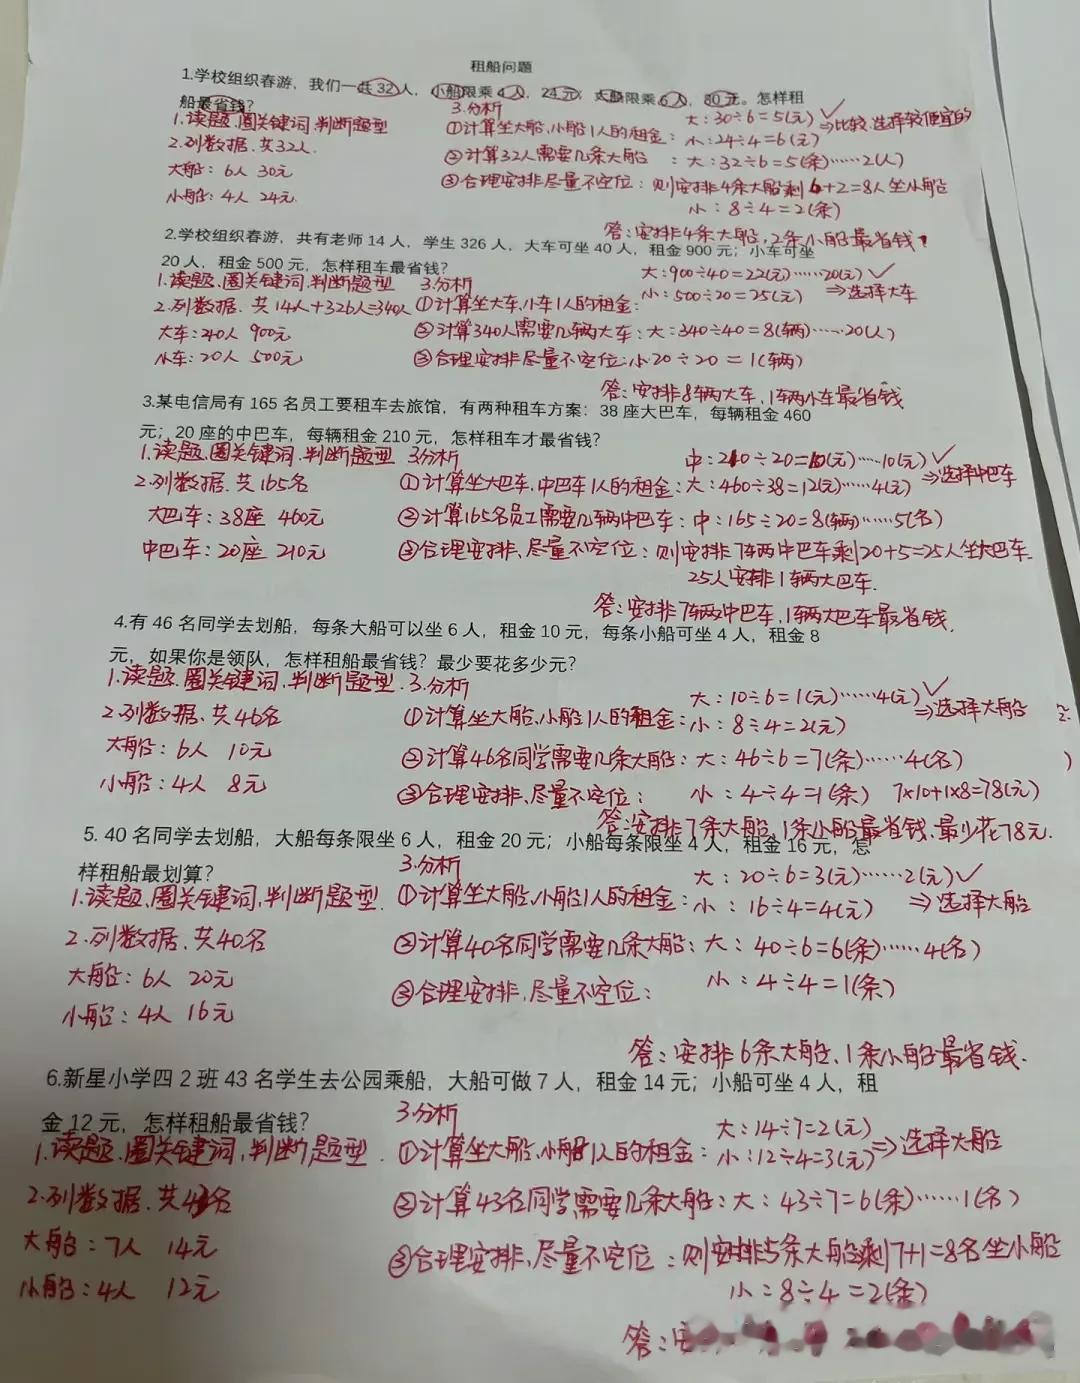 租船问题
1.学校组织春游，我们一共32人，小船限乘4人，24元，大船限乘6人，30元。怎样租
船最省钱？
1.读题、圈关键词、判断题型
2.列数据、共32人.
大船：6人 30元
小船：4人 24元.
3.分析
大：30÷6=5(元)✓
①计算坐大船、小船1人的租金：小：24÷4=6(元)
⇒比较、选择较便宜的
②计算32人需要几条大船：大：32÷6=5(条)……2(人)
③合理安排尽量不空位：则安排4条大船剩6+2=8人坐小船
小：8÷4=2(条)
答：安排4条大船，2条小船最省钱
2.学校组织春游，共有老师14人，学生326人，大车可坐40人，租金900元；小车可坐
20人，租金500元，怎样租车最省钱？
1.读题、圈关键词、判断题型
2.列数据、共14人+326人=340人
大车：40人 900元
小车：20人 500元
3.分析
大：900÷40=22(元)……20(元)✓
①计算坐大车、小车1人的租金：小：500÷20=25(元) ⇒选择大车
②计算340人需要几辆大车：大：340÷40=8(辆)……20(人)
③合理安排尽量不空位：小20÷20=1(辆)
答：安排8辆大车，1辆小车最省钱
3.某电信局有165名员工要租车去旅馆，有两种租车方案：38座大巴车，每辆租金460
元；20座的中巴车，每辆租金210元，怎样租车才最省钱？
1.读题、圈关键词、判断题型
2.列数据、共165名
大巴车：38座 460元
中巴车：20座 210元
3.分析
中：210÷20=10(元)…10(元)✓
①计算坐大巴车、中巴车1人的租金：大：460÷38=12(元)……4(元) ⇒选择中巴车
②计算165名员工需要几辆中巴车：中：165÷20=8(辆)……5(名)
③合理安排、尽量不空位：则安排7辆中巴车剩20+5=25人坐大巴车.
25人安排1辆大巴车.
答：安排7辆中巴车，1辆大巴车最省钱.
4.有46名同学去划船，每条大船可以坐6人，租金10元，每条小船可坐4人，租金8
元，如果你是领队，怎样租船最省钱？最少要花多少元？
1.读题、圈关键词、判断题型.
2.列数据、共46名
大船：6人 10元
小船：4人 8元
3.分析
大：10÷6=1(元)……4(元)✓
①计算坐大船、小船1人的租金：小：8÷4=2(元) ⇒选择大船
②计算46名同学需要几条大船：大：46÷6=7(条)……4(名)
③合理安排、尽量不空位： 小：4÷4=1(条) 7×10+1×8=78(元)
答：安排7条大船、1条小船最省钱、最少花78元.
5. 40名同学去划船，大船每条限坐6人，租金20元；小船每条限坐4人，租金16元，怎
样租船最划算？
1.读题、圈关键词，判断题型.
2.列数据、共40名
大船：6人 20元
小船：4人 16元
3.分析
大：20÷6=3(元)……2(元)✓
①计算坐大船、小船1人的租金：小：16÷4=4(元) ⇒选择大船
②计算40名同学需要几条大船：大：40÷6=6(条)……4(名)
③合理安排、尽量不空位： 小：4÷4=1(条)
答：安排6条大船、1条小船最省钱.
6.新星小学四2班43名学生去公园乘船，大船可做7人，租金14元；小船可坐4人，租
金12元，怎样租船最省钱？
1.读题、圈关键词，判断题型.
2.列数据、共43名
大船：7人 14元
小船：4人 12元
3.分析
大：14÷7=2(元)
①计算坐大船、小船1人的租金：小：12÷4=3(元) ⇒选择大船
②计算43名同学需要几条大船：大：43÷7=6(条)……1(名)
③合理安排、尽量不空位：则安排5条大船剩7+1=8名坐小船
小：8÷4=2(条)
答：